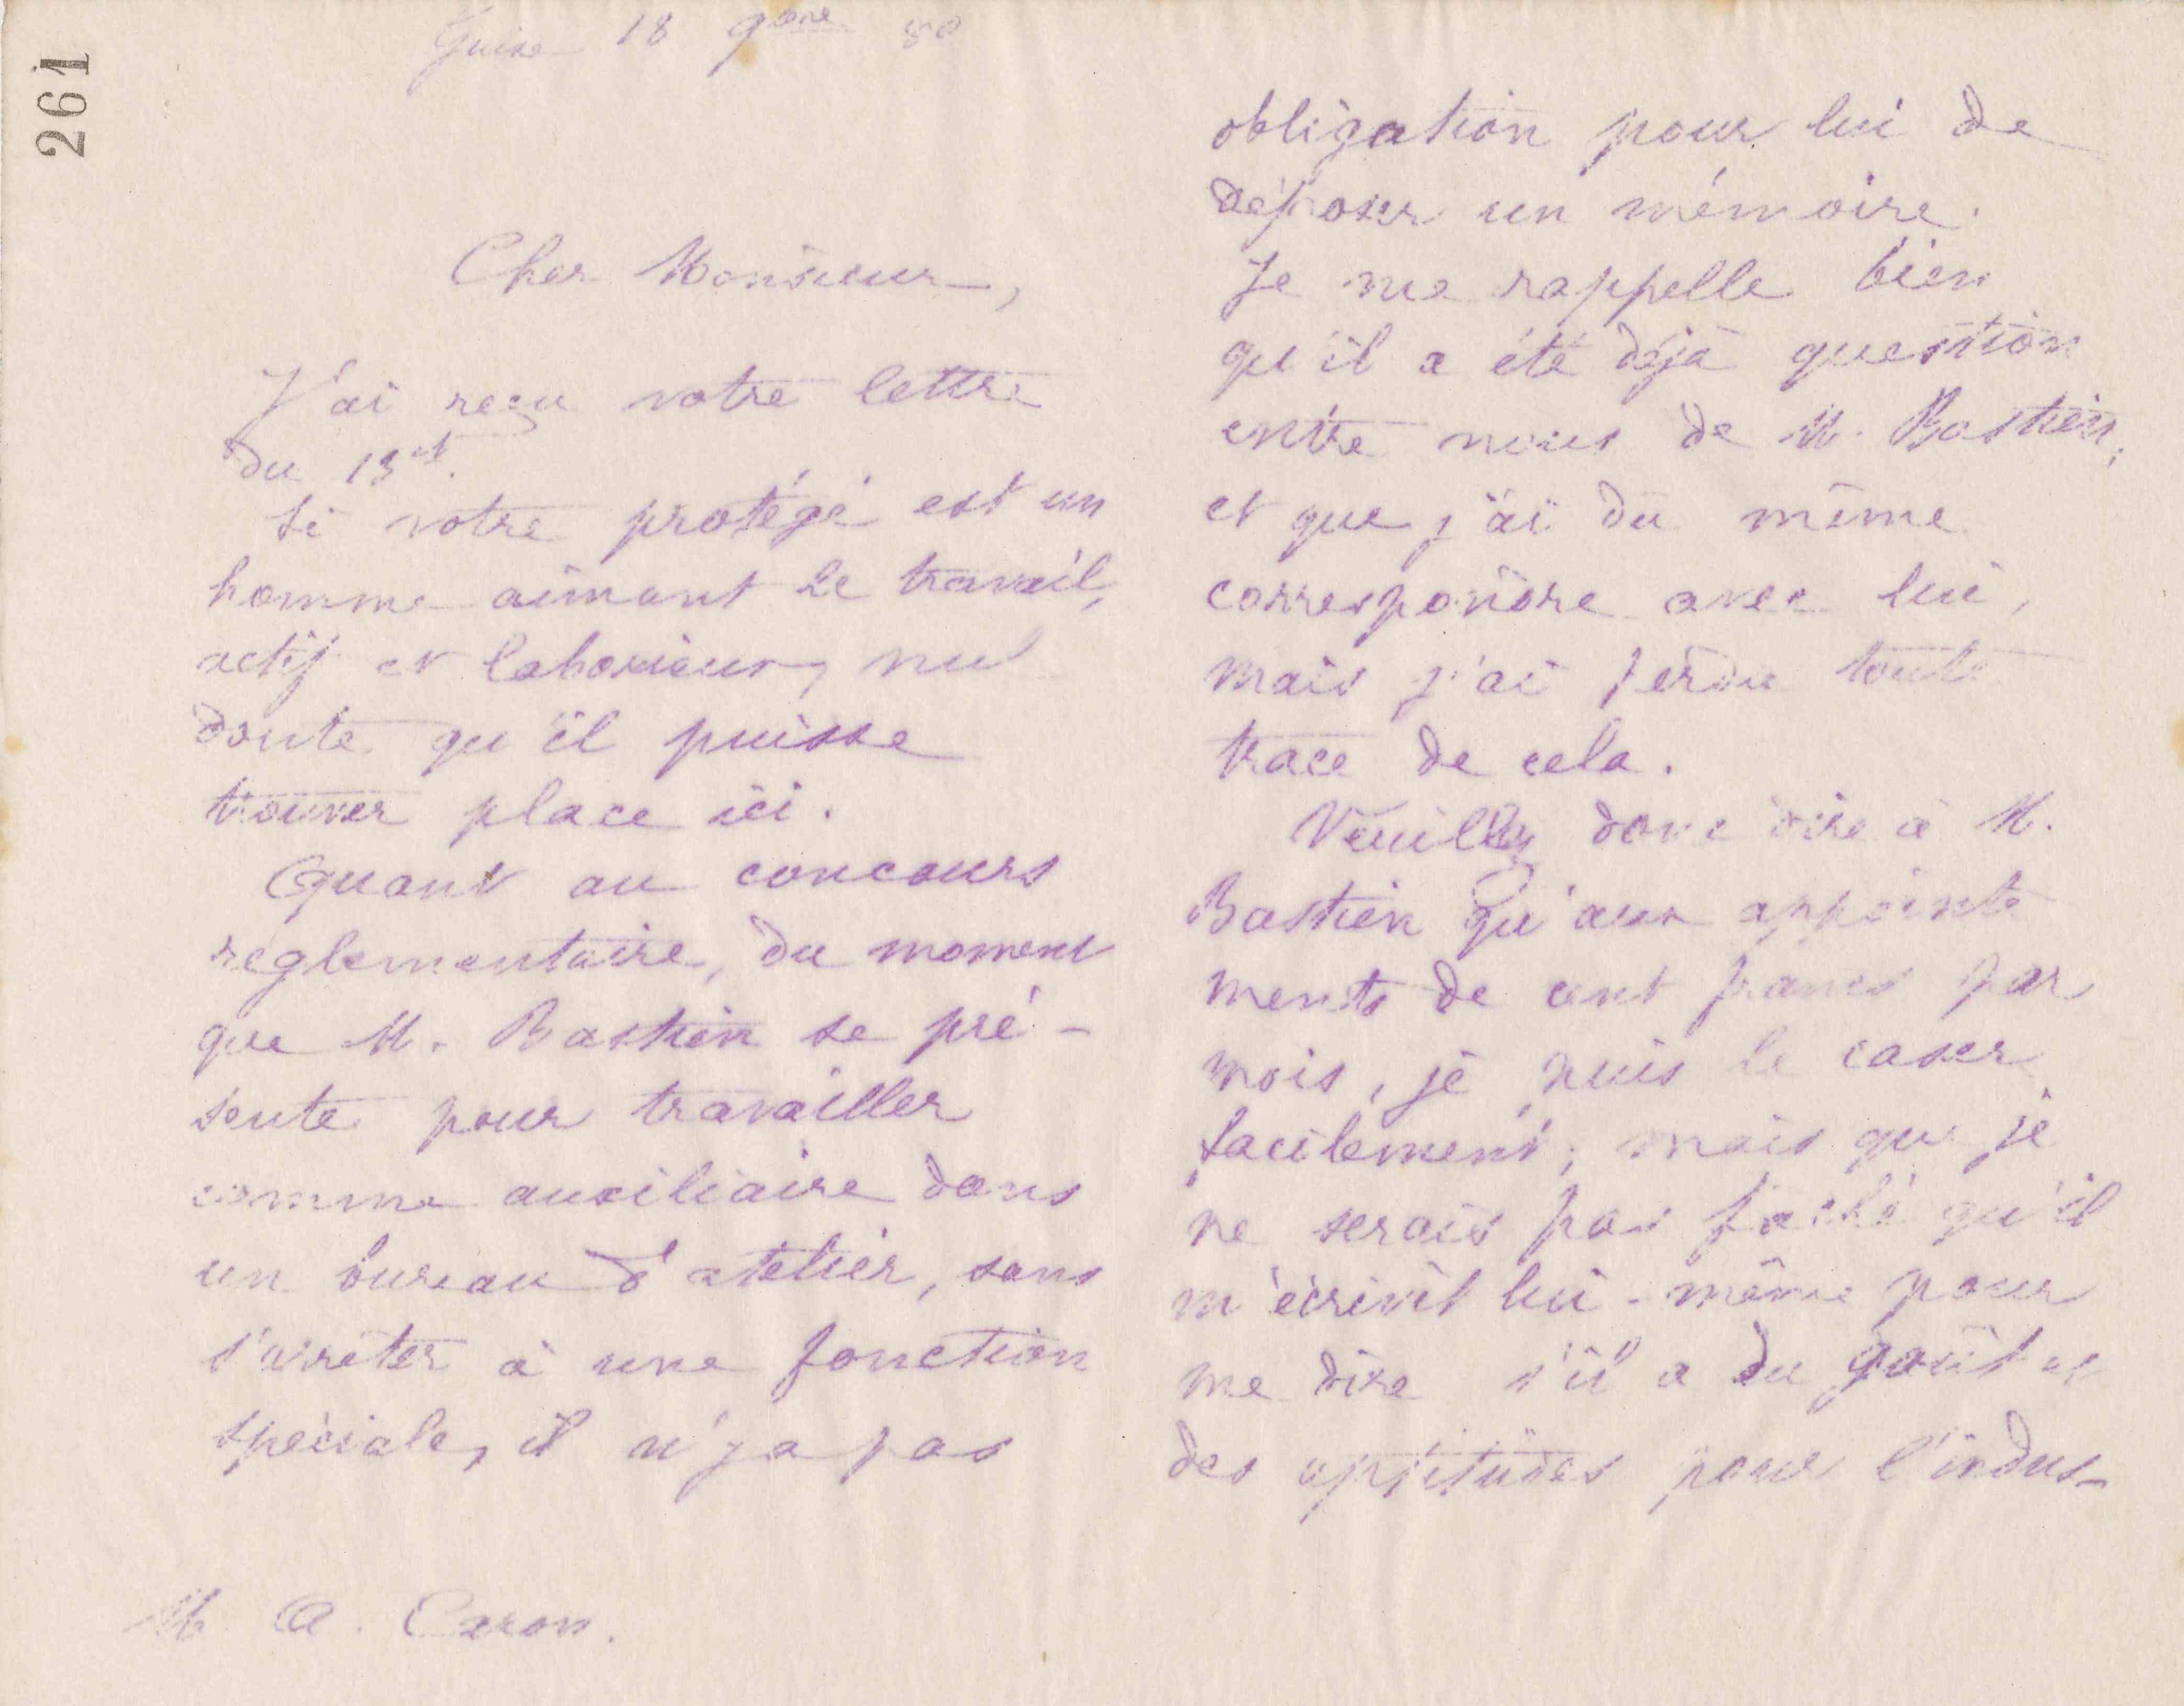 261
Guise 18 9bre 80
Cher Monsieur,
J'ai reçu votre lettre
du 15 ct.
Si votre protégé est un
homme aimant le travail,
actif et laborieux, nul
doute qu'il puisse
trouver place ici.
Quant au concours
réglementaire, du moment
que M. Bastien se pré-
sente pour travailler
comme auxiliaire dans
un bureau d'atelier, sans
s'arrêter à une fonction
spéciale, il n'y a pas
M A. Caron.
obligation pour lui de
déposer un mémoire.
Je me rappelle bien
qu'il a été déjà question
entre nous de M. Bastien,
et que j'ai dû même
correspondre avec lui,
mais j'ai perdu toute
trace de cela.
Veuillez donc dire à M.
Bastien qu'aux appointe
ments de cent francs par
mois, je puis le caser
facilement; mais que je
ne serais pas fâché qu'il
m'écrivît lui-même pour
me dire s'il a du goût et
des aptitudes pour l'indus-